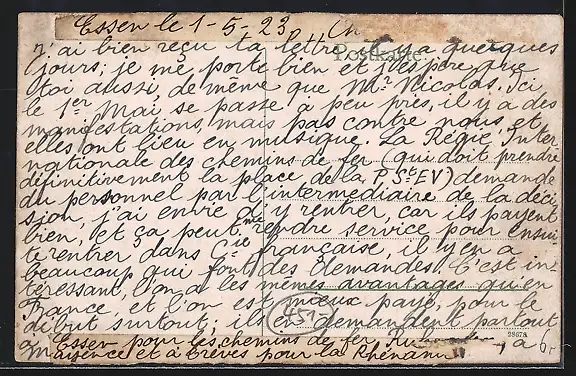 Essen le 1-5-23 Ch
n'ai bien reçu ta lettre il y a quelques
Postkarte
jours; je me porte bien et j'espère que
toi aussi, de même que Mr Nicolas. Ici
le 1er Mai se passe à peu près, il y a des
manifestations, mais pas contre nous, et
elles ont lieu en musique. La Régie Inter
nationale des chemins de fer (qui doit prendre
définitivement la place de la P St EV) demande
du personnel par l'intermédiaire de la déci
sion, j'ai envie d'y rentrer, car ils payent
bien, et ça peut me rendre service pour ensuite
rentrer dans Cie française, il y en a
beaucoup qui font des demandes. C'est in-
téressant, l'on a les mêmes avantages qu'en
France, et l'on est mieux payé, pour le
début surtout; ils en demandent partout
451
Essen pour les chemins de fer, à
28678
Mayence et à Trèves pour la Rhénanie